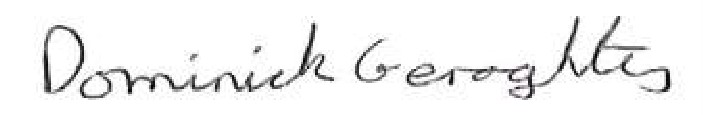 Dominick Geraghty